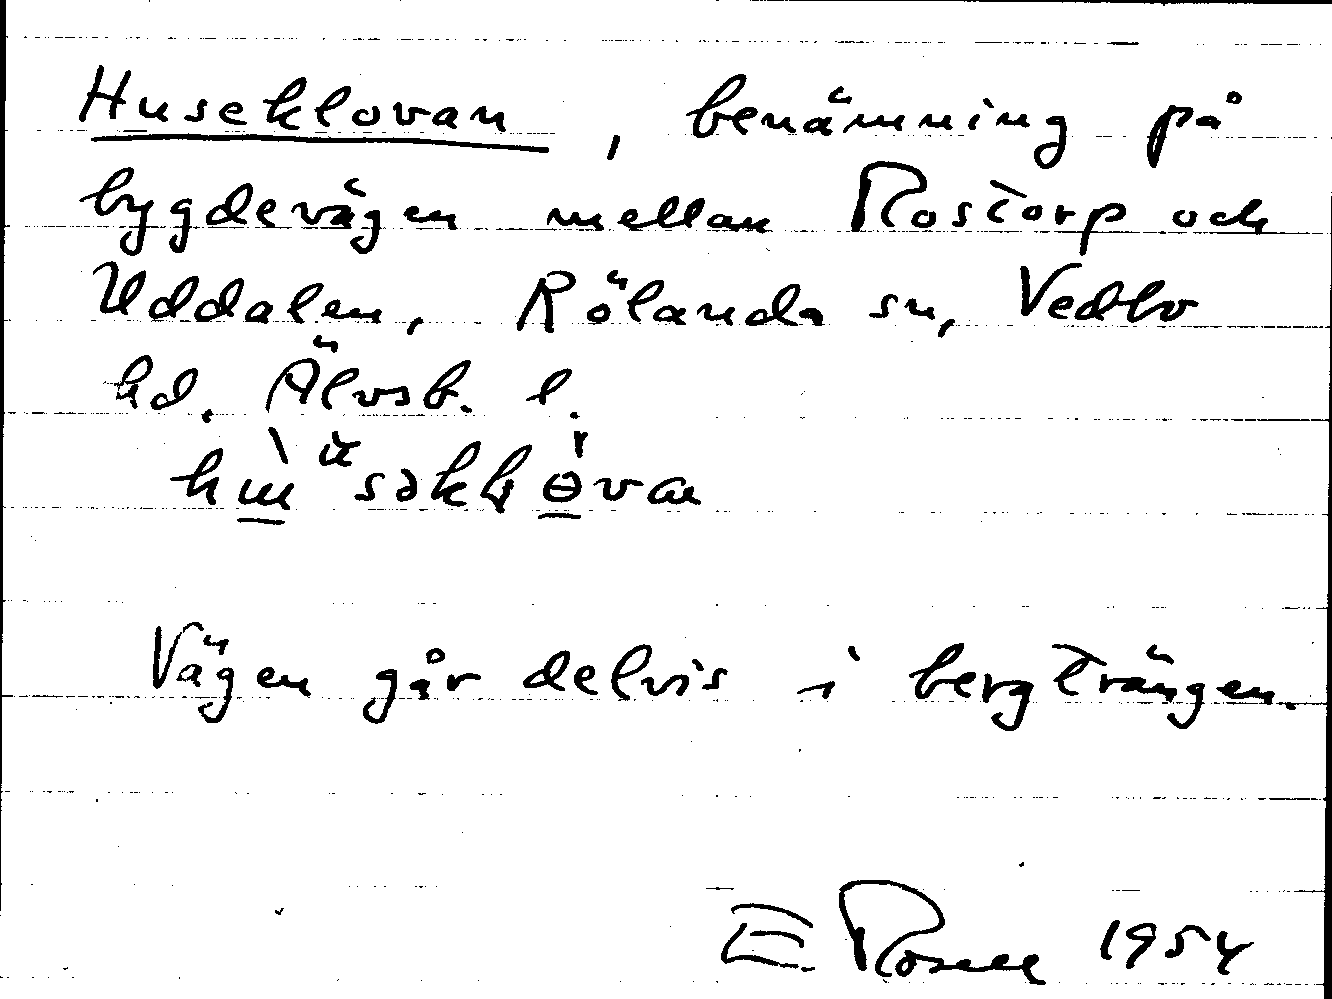 Huseklovan, benämning på
bygdevägen mellan Rostorp och
Uddalen, Rölanda sn, Vedbo
hd. Älvsb. l.
Vägen går delvis i bergträngen.
E. Rosell 1954